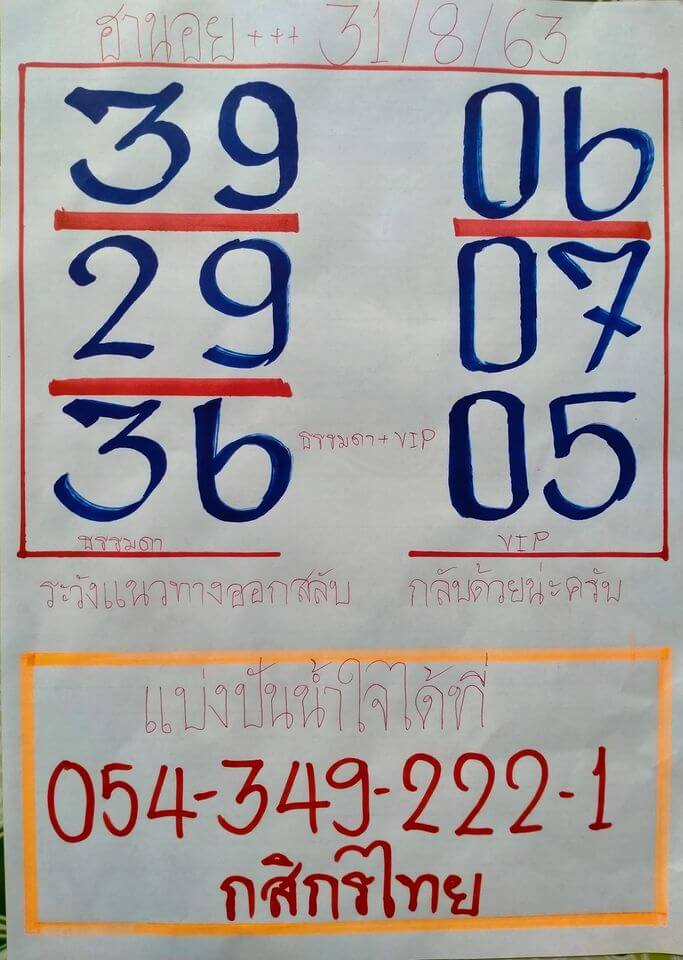 ฮานอย+++ 31/8/63
39 06
29 07
36 05
ธรรมดา+VIP
ธรรมดา VIP
ระวังแนวทางออกสลับ กลับด้วยน่ะครับ
แบ่งปันน้ำใจได้ที่
054-349-222-1
กสิกรไทย